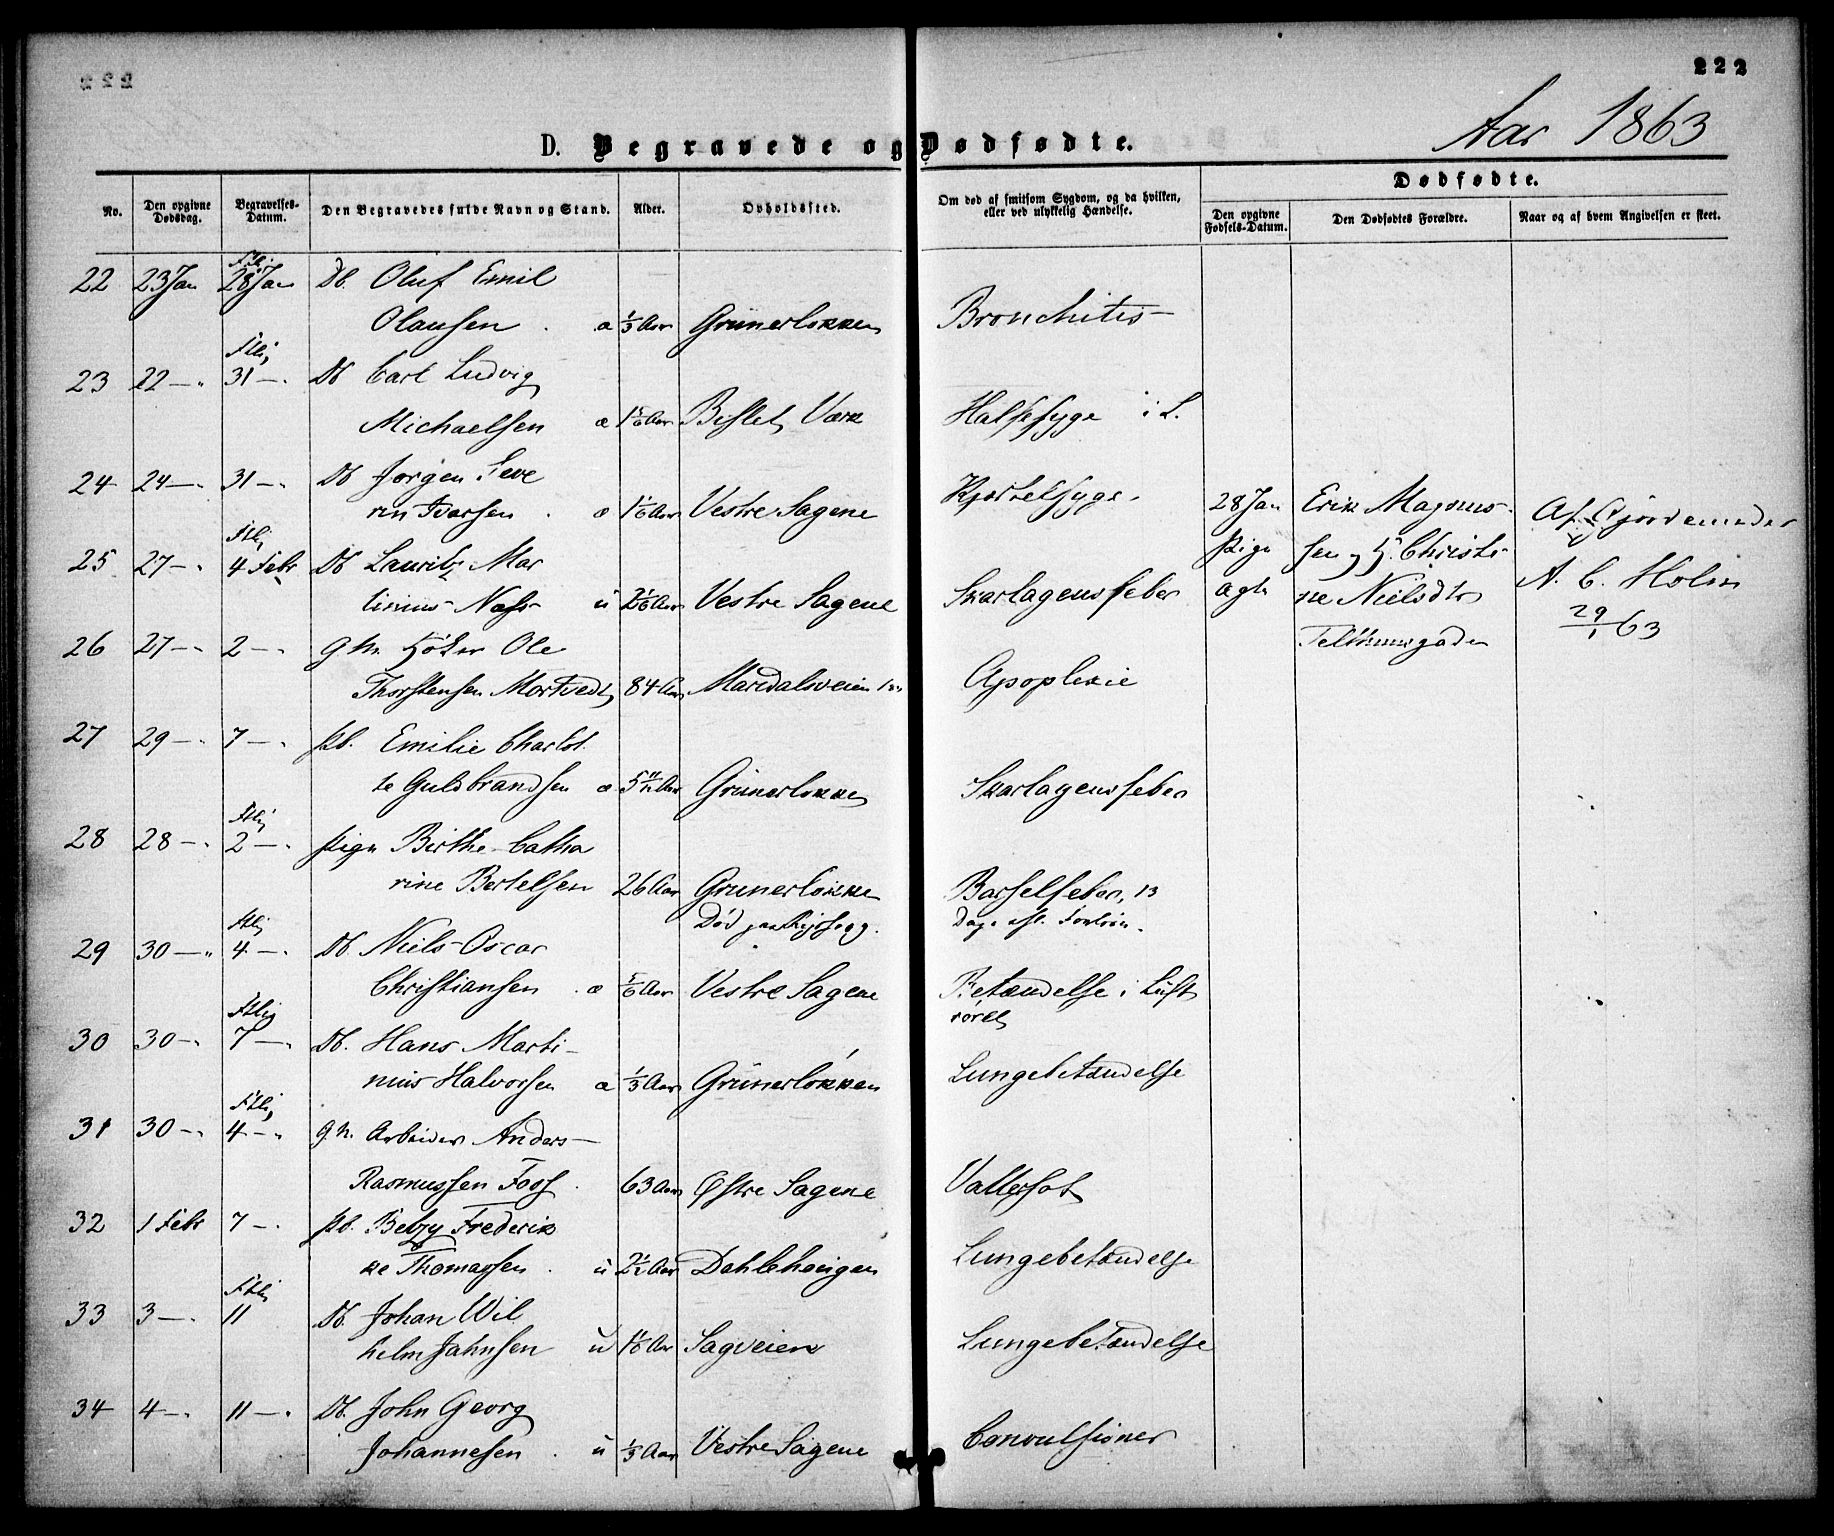 222
Aar 1863
D. Begravede og Dødfødte.
No. Den opgivne Dødsdag. Begravelses-Datum. Den Begravedes fulde Navn og Stand. Alder. Opholdssted. Om død af smitsom Sygdom, og da hvilken, eller ved ulykkelig Hændelse.
Dødfødte.
Den opgivne Fødsels-Datum. Den Dødfødtes Forældre. Naar og af hvem Angivelsen er skeet.
22 23 Jan 28 Jan Db. Oluf Emil
Olausen . a 1/3 Aar Grünerløkken Bronchites
23 22 — 31 — Db Carl Ludvig
Michaelsen a 1 5/6 Aar Bislet Værk Halsesyge i L.
24 24 — 31 — Db Jørgen Seve
rin Ivarsen . a 1 1/6 Aar Vestre Sagene Kjertelsyge
28 Jan Erik Magnus Af Gjordemoder
Pige sen og H. Christi A. C. Holm
ægte ne Nielsdtr 29/1 63
Telthusgaden
25 27 — 4 Febr Db Lauritz Mar
tinius Næss u 2 1/6 Aar Vestre Sagene Skarlagensfeber
26 27 — 2 — gm. Høker Ole
Thorstensen Mortvedt 84 Aar Maridalsveien Apoplexie
27 29 — 7 — Pb. Emilie Charlot
te Guldbrandsen a 5 11/12 Aar Grünerløkke Skarlagensfeber
28 28 — 2 — Pige Birthe Catha
rine Bertelsen 26 Aar Grünerløkke Barselfeber, 13
Død paa Dage eft.
29 30 — 4 — Db. Niels Oscar
Christiansen . a 5/6 Aar Vestre Sagene Betændelse i Luft
røret
30 30 — 7 — Db. Hans Marti
nius Halvorsen a 1/3 Aar Grünerløkken Lungebetændelse
31 30 — 4 — gm. Arbeider Anders
Rasmussen Foss . 63 Aar Østre Sagene Vattersot
32 1 Febr 7 — Pb. Betzy Frederik
ke Thomassen . u 2 1/2 Aar Dahlehaugen Lungebetændelse
33 3 — 11 Db. Johan Wil
helm Jahnsen u 1 1/6 Aar Sagveien Lungebetændelse
34 4 — 11 — Db. John Georg
Johannesen . u 1/3 Aar Vestre Sagene Convulsioner